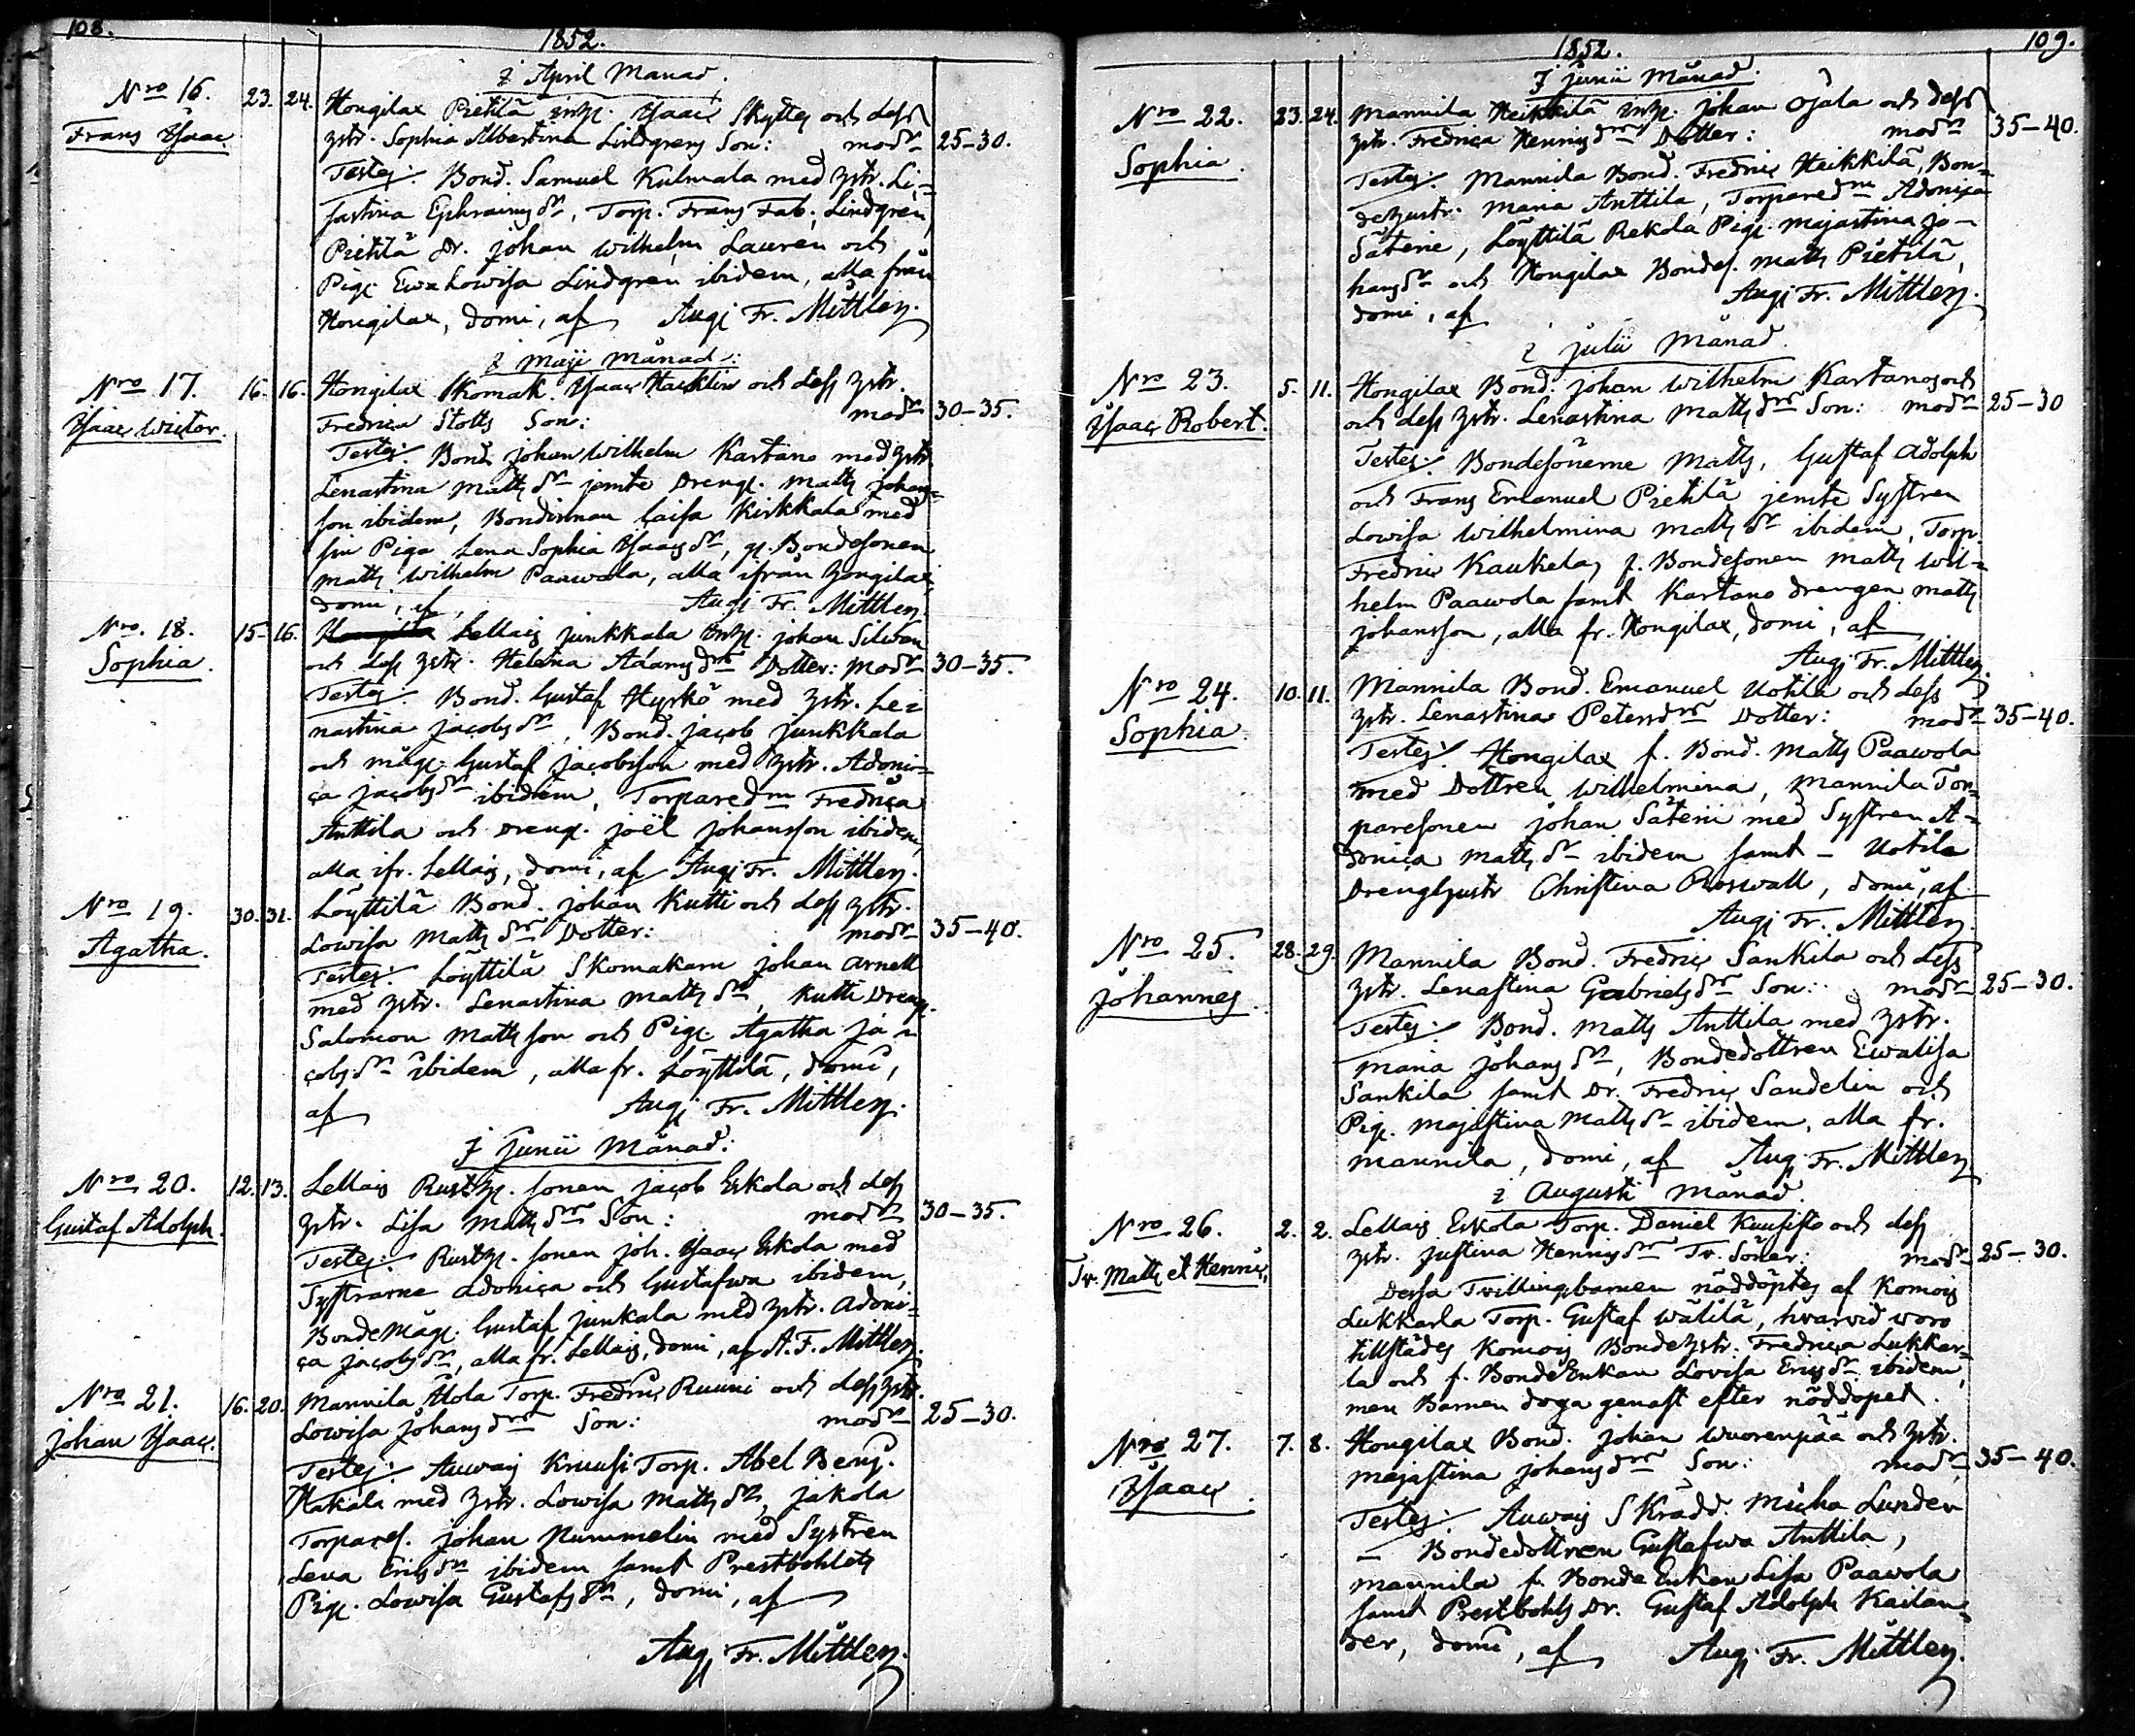 108.
1852.
i April Månad.
Nro 16. 23. 24. Hongilax Pietilä inhs. Isaac Skytts och dess
Frans Isaac. hstr. Sophia Albertina Lindgrens Son: modr 25-30.
Testes: Bond. Samuel Kulmala med hstr. Li=
sastina Ephraimsdr, Torp. Frans Fab. Lindgren,
Pietilä Dr. Johan Wilhelm Lauren och
Pig. Ewa Lowisa Lindgren ibidem, alla från
Hongilax, domi, af Aug. Fr. Mittler.
i Maji Månad:
Nro 17. 16. 16. Hongilax Skomak. Isaac Hacklin och dess hstr.
Isaac Wictor. Fredrica Stolts Son: modr 30-35.
Testes: Bond. Johan Wilhelm Kartano med hstr.
Lenastina Mattsdr jemte Dreng. Matts Johans=
son ibidem, Bondinnan Caisa Kirkkala med
sin Piga Lena Sophia Isaacsdr, g. Bondesonen
Matts Wilhelm Paawola, alla ifrån Hongilax,
domi, af Aug. Fr. Mittler.
Nro. 18. 15- 16. Hongilax Lellais Junkkala inhs. Johan Silwan
Sophia. och dess hstr. Helena Adamsdrs Dotter: modr 30-35.
Testes: Bond. Gustaf Hyrkö med hstr. Le=
nastina Jacobsdr, Bond. Jacob Junkkala
och måg. Gustaf Jacobsson med hstr. Adoni=
ca Jacobsdr ibidem, Torparedrn Fredrica
Anttila och Dreng. Joël Johansson ibidem,
alla ifr. Lellais, domi, af Aug. Fr. Mittler.
Nro 19. 30. 31. Löyttilä Bond. Johan Kutti och dess hstr.
Agatha. Lowisa Mattsdrs Dotter: modr 35-40.
Testes: Löyttilä Skomakarn Johan Arnell
med hstr. Lenastina Mattsdr, Kutti Dreng.
Salomon Mattsson och Pig. Agatha Ja=
cobsdr ibidem, alla fr. Löyttilä, domi,
af Aug. Fr. Mittler.
i Junii Månad:
Nro 20. 12. 13. Lellais Rusth. sonen Jacob Eskola och dess
Gustaf Adolph. hstr. Lisa Mattsdrs Son: modr 30-35.
Testes: Rusth. sonen Joh. Isaac Eskola med
Systrarne Adonica och Gustafwa ibidem,
Bondemåg. Gustaf Junkala med hstr. Adoni=
ca Jacobsdr, alla fr. Lellais, domi, af A. F. Mittler.
Nro 21. 16. 20. Mannila Ylola Torp. Fredric Ruuni och dess hstr.
Johan Isaac. Lowisa Johansdrs Son: modr 25-30.
Testes: Auwais Kruusi Torp. Abel Benj.
Hakala med hstr. Lowisa Mattsdr, Jakola
Torpares. Johan Nummelin med Systren
Lena Ericsdr ibidem samt Prestbohlets
Pig. Lowisa Gustafsdr, domi, af
Aug. Fr. Mittler.
109.
1852.
i Junii Månad.
Nro 22. 23. 24. Mannila Heikkilä inhs. Johan Ojala och dess
Sophia. hstr. Fredrica Henricsdrs Dotter: modr 35-40.
Testes: Mannila Bond. Fredric Heikkilä, Bon=
dehustr. Maria Anttila, Torparedrn Adonica
Säterie, Löyttilä Rekola Pig. Majastina Jo=
hansdr och Hongilax Bondes. Matts Pietilä,
domi, af Aug. Fr. Mittler.
i Julii Månad.
Nro 23. 5. 11. Hongilax Bond. Johan Wilhelm Kartanos och
Isaac Robert. och dess hstr. Lenastina Mattsdrs Son: modr 25-30
Testes: Bondesönerne Matts, Gustaf Adolph
och Frans Emanuel Pietilä jemte Systren
Lowisa Wilhelmina Mattsdr ibidem, Torp.
Fredric Kaukela, f. Bondesonen Matts Wil=
helm Paawola samt Kartano drengen Matts
Johansson, alla fr. Hongilax, domi, af
Aug. Fr. Mittler.
Nro 24. 10. 11. Mannila Bond. Emanuel Uotila och dess
Sophia hstr. Lenastina Petersdrs Dotter: modr 35-40.
Testes: Hongilax f. Bond. Matts Paawola
med Dottren Wilhelmina, Mannila Tor=
paresonen Johan Säterii med Systren A=
donica Mattsdr ibidem samt - Uotila
Drenghustr Christina Roswall, domi, af
Aug. Fr. Mittler.
Nro 25. 28. 29. Mannila Bond. Fredric Sankila och dess
Johannes. hstr. Lenastina Gabrielsdrs Son: modr 25-30.
Testes: Bond. Matts Anttila med hstr.
Maria Johansdr, Bondedottren Ewalisa
Sankila samt Dr. Fredric Sandelin och
Pig. Majastina Mattsdr ibidem, alla fr.
Mannila, domi, af Aug. Fr. Mittler
i Augusti Månad.
Nro 26. 2. 2. Lellais Eskola Torp. Daniel Kuusisto och dess
Tv. Matts et Henric. hstr. Justina Henricsdrs Tv. Söner: modr 25-30.
Dessa Twillingsbarnen nöddöptes af Komois
Lukkarla Torp. Gustaf Wälilä, hvarwid woro
tillstädes Komois Bondehstr. Fredrica Lukkar=
la och f. BondeEnkan Lovisa Ericsdr ibidem,
men Barnen dogo genast efter nöddopet.
Nro 27. 7. 8. Hongilax Bond. Johan Wuorenpää och hstr.
Isaac. Majastina Johansdrs Son: modr 35-40.
Testes: Auwais Skrädd. Micha Lunden
- Bondedottren Gustafwa Anttila,
Mannila f. Bonde Enkan Lisa Paavola
samt Prestbohls Dr. Gustaf Adolph Kailan=
der, domi, af Aug. Fr. Mittler.